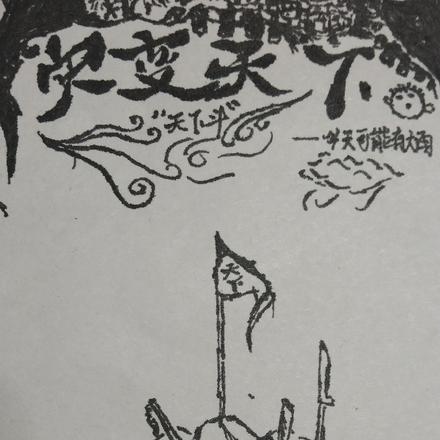 变天下
"天下斗"
——今天可能有大雨
天下